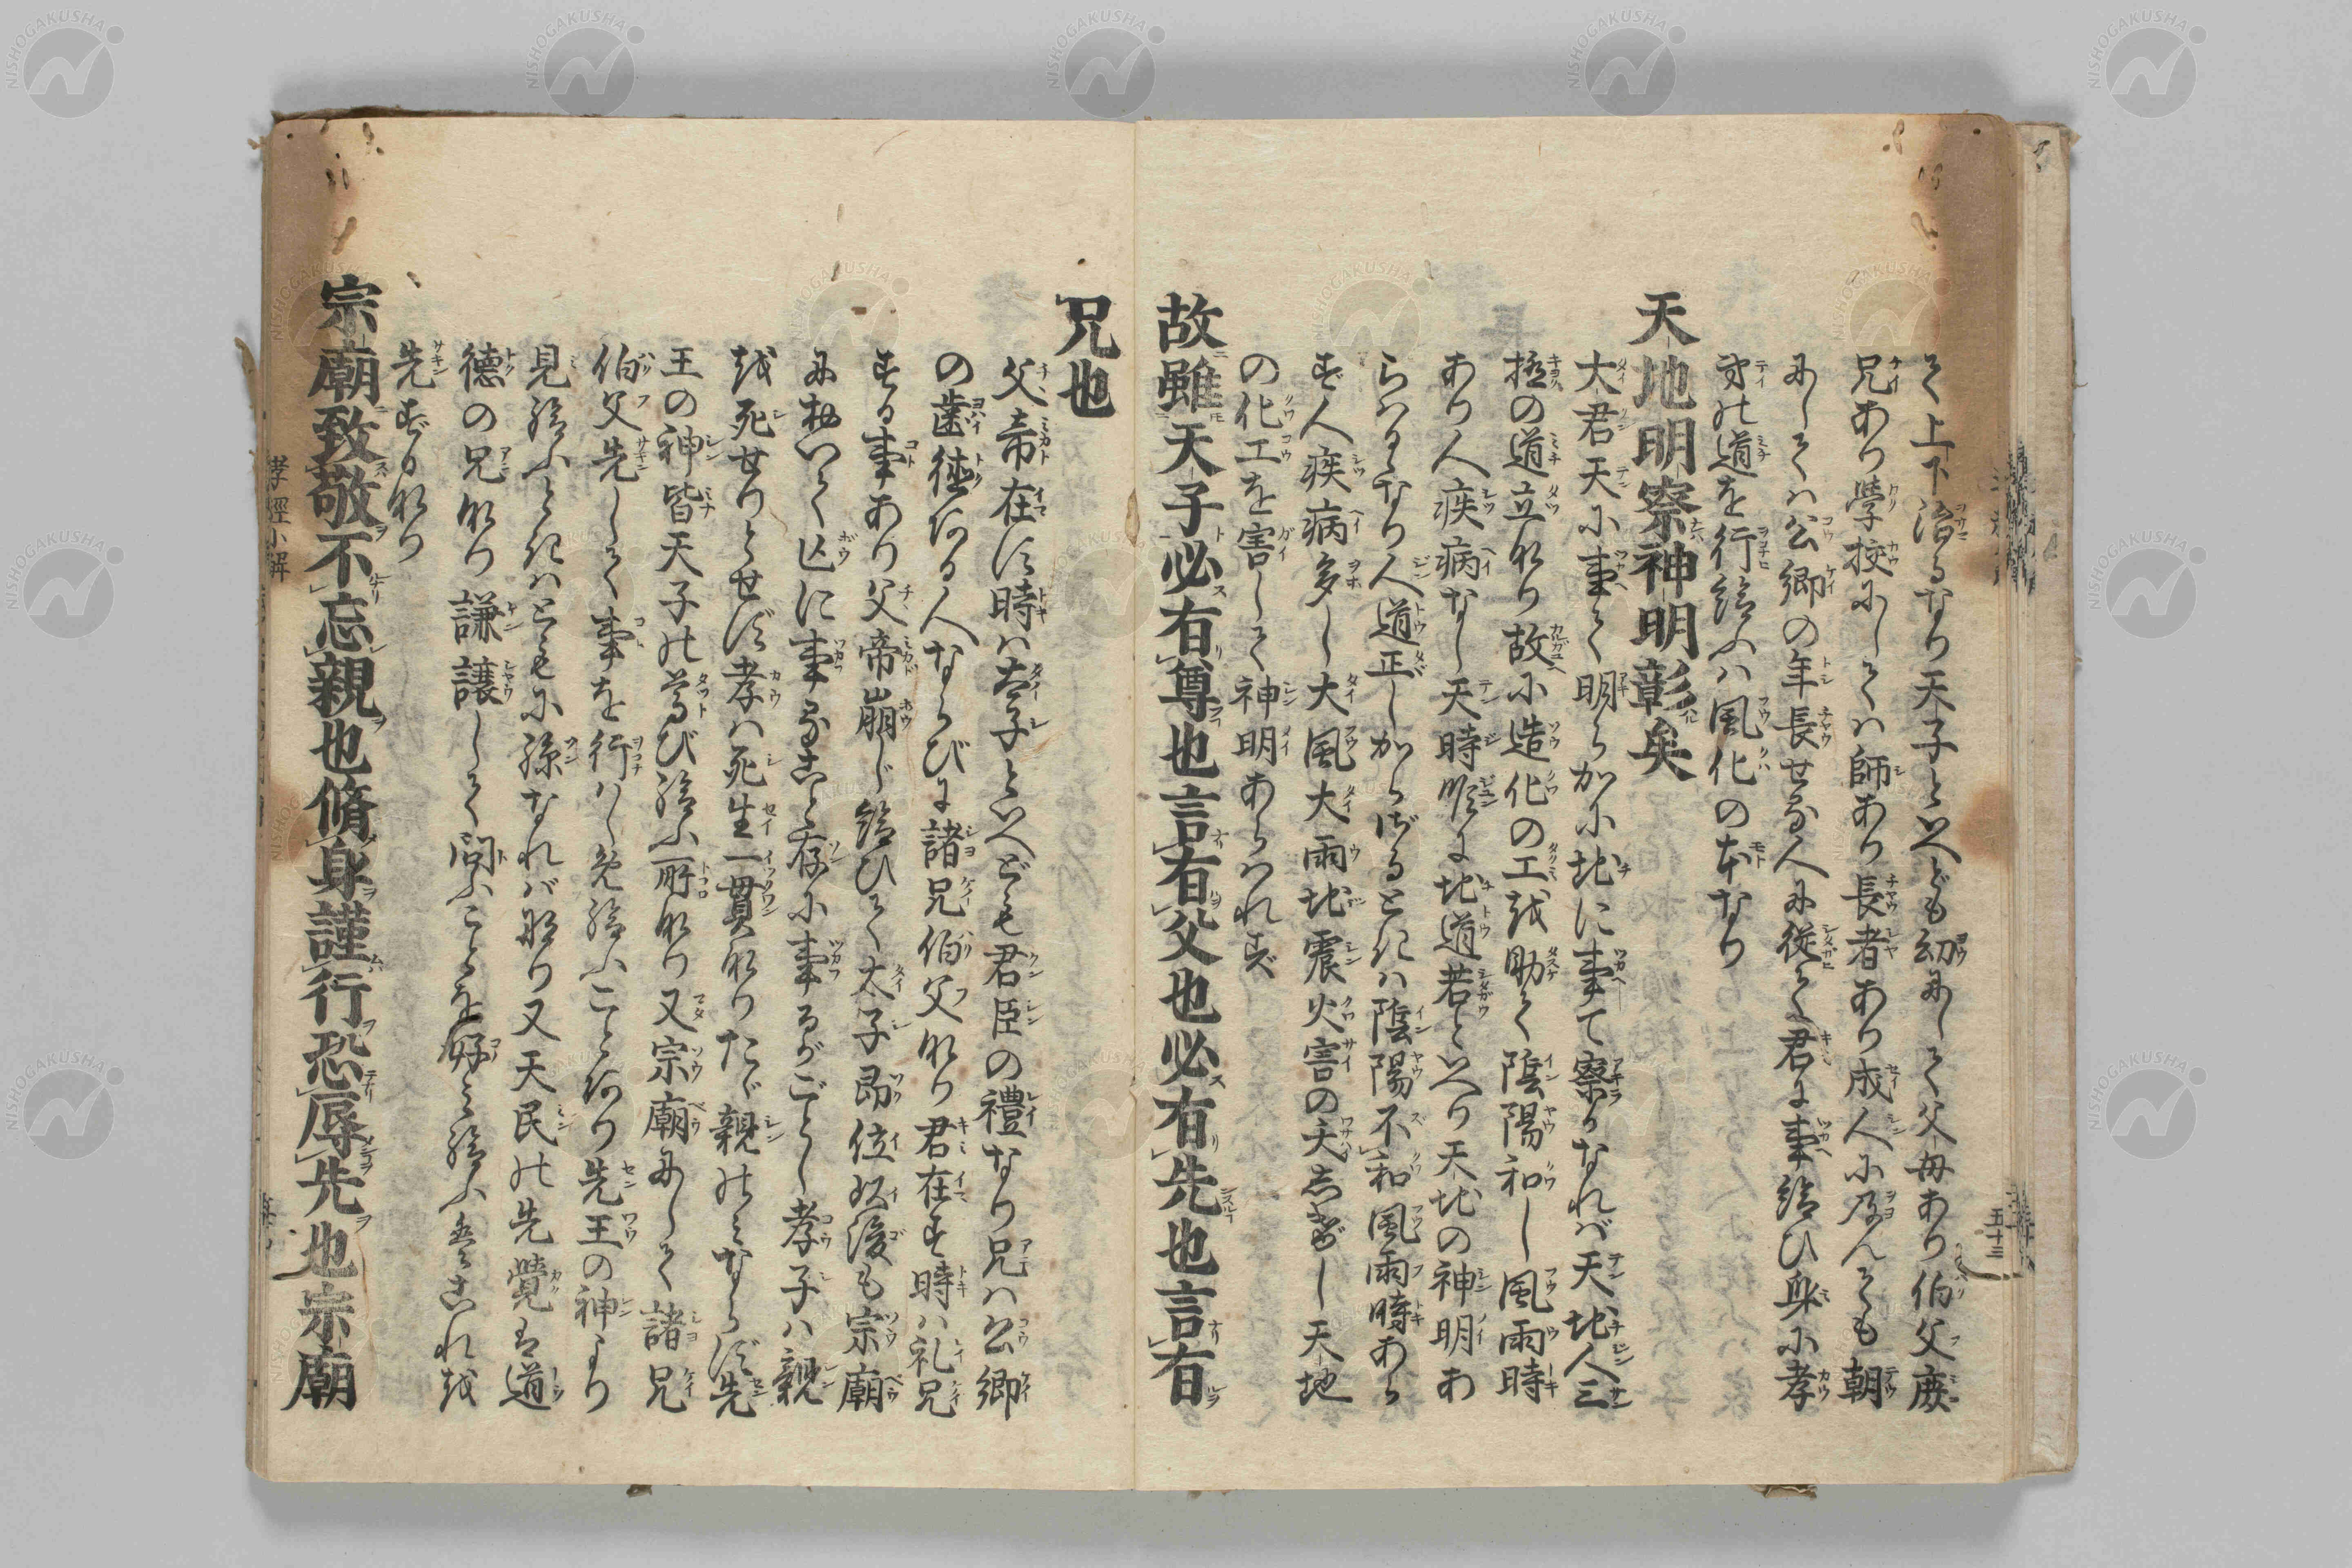 て上下治るなり天子といへども幼にして父母あり伯父庶
兄あり学校にしては師あり長者あり成人に及んても朝
にしては公卿の年長せる人に従て君に事給ひ身に孝
弟の道を行給ふは風化の本なり
天地明察神明彰矣
大君天に事て明らかに地に事て察かなれば天地人三
極の道立なり故に造化の工を助て陰陽和し風雨時
あり人疾病なし天時順に地道若といへり天地の神明あ
らはるなり人道正しからざるときは陰陽不和風雨時あら
ず人疾病多し大風大雨地震火害の夭しげし天地
の化工を害して神明あらはれず
故雖天子必有尊也言有父也必有先也言有
兄也
父帝在す時は太子といへども君臣の禮なり兄は公卿
の歯徳ある人ならびに諸兄伯父なり君在す時は礼兄
する事あり父帝崩じ給ひて太子即位以後も宗廟
に於いて亡に事ること存に事るがごとし孝子は親
を死せりとせず孝は死生一貫なりたゞ親のみならず先
王の神皆天子の尊び給ふ所なり又宗廟にして諸兄
伯父先して事を行はしめ給ふことあり先王の神より
見給ふときはともに孫なればなり又天民の先覺は道
徳の兄なり謙譲して問ふことを好み給ふはこれを
先ずるなり
宗廟致敬不忘親也脩身謹行恐辱先也宗廟
孝經小解
五十三